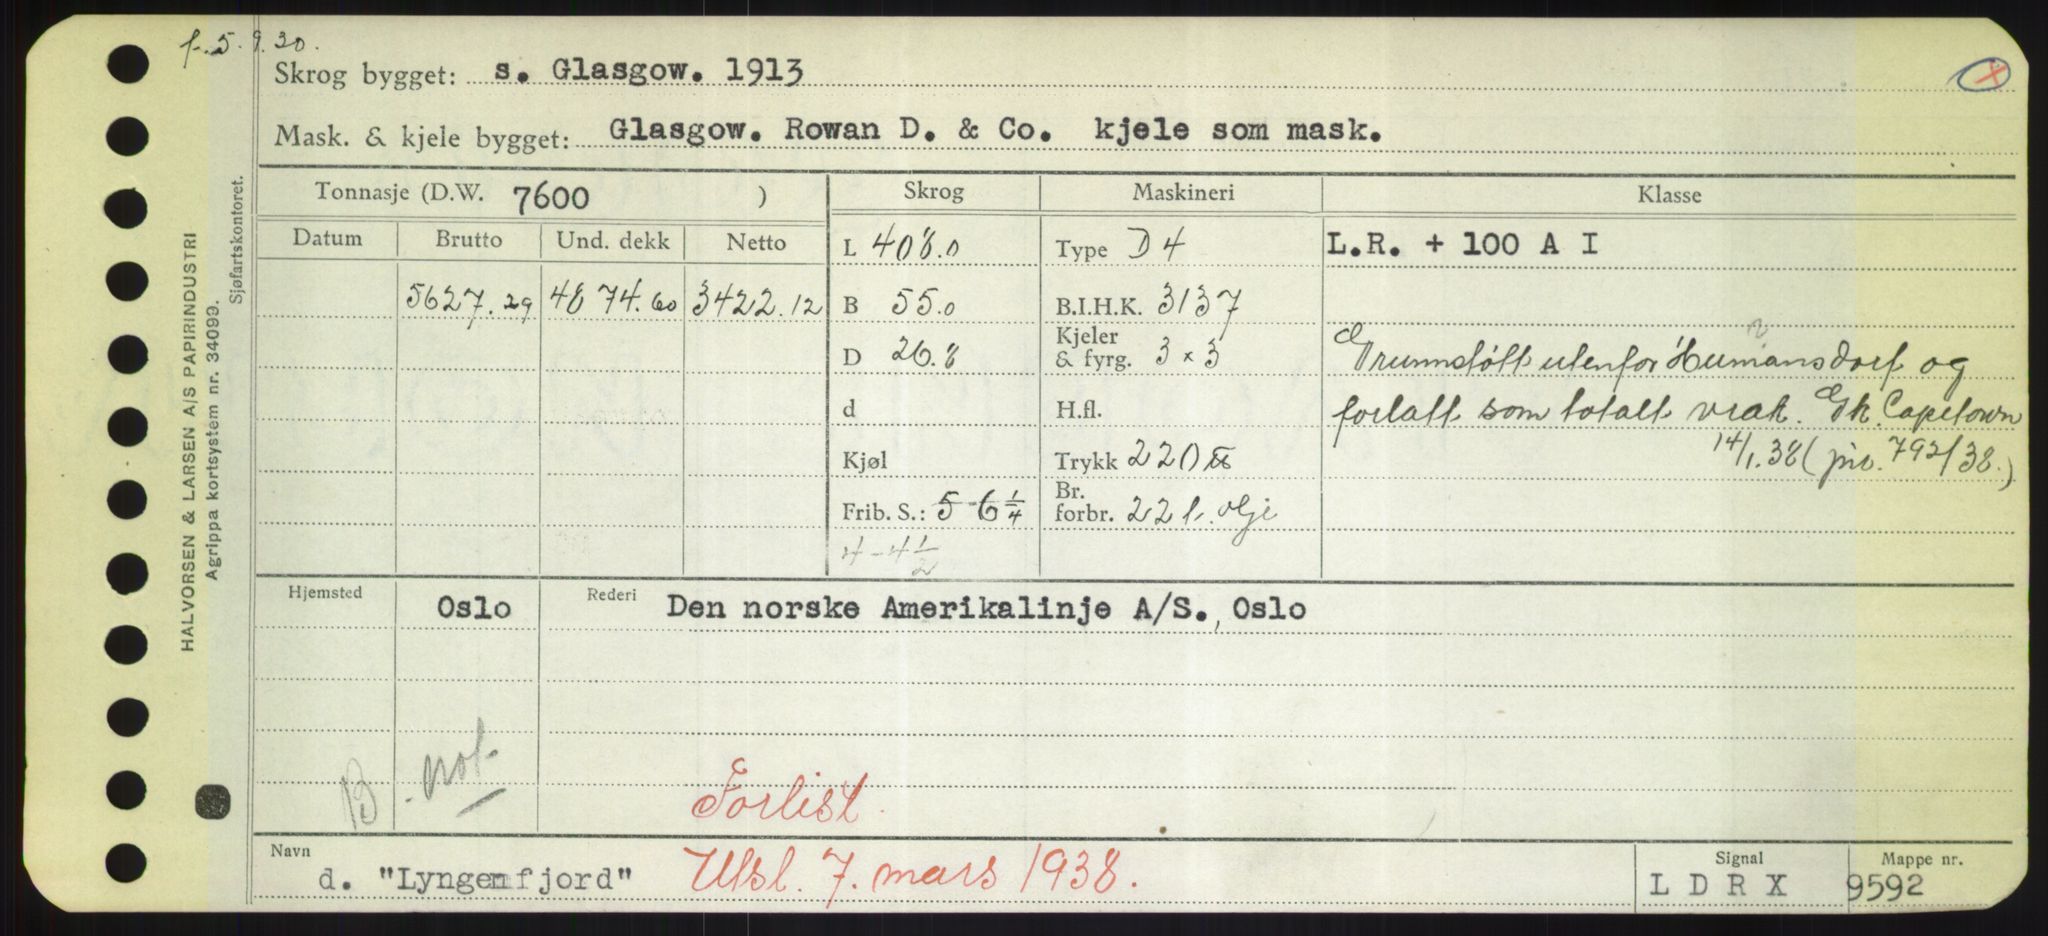 f. 5.9.30.
Skrog bygget: s. Glasgow. 1913
Mask. & kjele bygget: Glasgow. Rowan D. & Co. kjele som mask.
Tonnasje (D.W. 7600 )
Skrog
Maskineri
Klasse
Datum Brutto Und. dekk Netto
5627.29 4874.60 3422.12
L 408.0
B 55.0
D 26.8
d
Kjøl
Frib. S.: 5-6 1/4
4-4 1/2
Type D 4
B.I.H.K. 3137
Kjeler
& fyrg. 3 x 3
H.fl.
Trykk 220 lb
Br.
forbr. 22 t. olje
L.R. + 100 A I
Grunnstøtt utenfor Humansdorf og
forlatt som totalt vrak. Gk. Capetown
14/1.38 (jnr. 792/38.)
Hjemsted Oslo Rederi Den norske Amerikalinje A/S., Oslo
B. not.
Forlist.
Navn
d. "Lyngenfjord" Utsl. 7. mars 1938.
Signal
L D R X
Mappe nr.
9592
HALVORSEN & LARSEN A/S PAPIRINDUSTRI
Agrippa kortsystem nr. 34099.
Sjøfartskontoret.